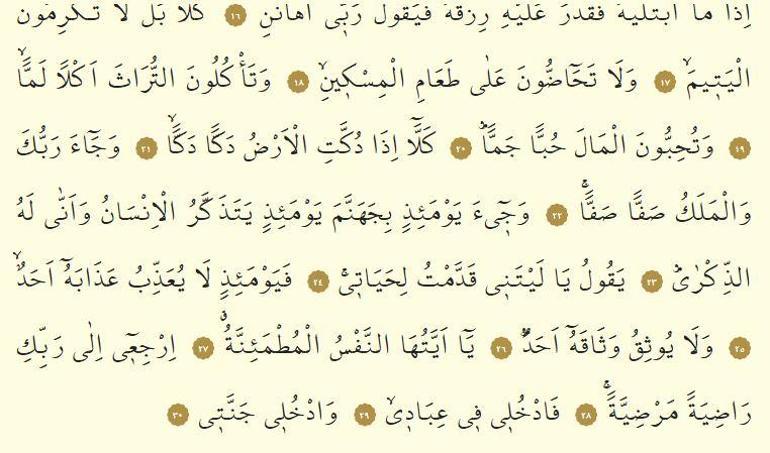 اِذَا مَا ابْتَلٰيهُ فَقَدَرَ عَلَيْهِ رِزْقَهُ فَيَقُولُ رَبّ۪ٓي اَهَانَنِ ﴿١٦﴾ كَلَّا بَلْ لَا تُكْرِمُونَ
الْيَت۪يمَۙ ﴿١٧﴾ وَلَا تَحَٓاضُّونَ عَلٰى طَعَامِ الْمِسْك۪ينِۙ ﴿١٨﴾ وَتَأْكُلُونَ التُّرَاثَ اَكْلًا لَمًّاۙ
﴿١٩﴾ وَتُحِبُّونَ الْمَالَ حُبًّا جَمًّاۜ ﴿٢٠﴾ كَلَّٓا اِذَا دُكَّتِ الْاَرْضُ دَكًّا دَكًّاۙ ﴿٢١﴾ وَجَٓاءَ رَبُّكَ
وَالْمَلَكُ صَفًّا صَفًّاۚ ﴿٢٢﴾ وَج۪ٓيءَ يَوْمَئِذٍ بِجَهَنَّمَ يَوْمَئِذٍ يَتَذَكَّرُ الْاِنْسَانُ وَاَنّٰى لَهُ
الذِّكْرٰىۜ ﴿٢٣﴾ يَقُولُ يَا لَيْتَن۪ي قَدَّمْتُ لِحَيَات۪يۚ ﴿٢٤﴾ فَيَوْمَئِذٍ لَا يُعَذِّبُ عَذَابَهُٓ اَحَدٌۙ
﴿٢٥﴾ وَلَا يُوثِقُ وَثَاقَهُٓ اَحَدٌۜ ﴿٢٦﴾ يَٓا اَيَّتُهَا النَّفْسُ الْمُطْمَئِنَّةُۗ ﴿٢٧﴾ اِرْجِع۪ٓي اِلٰى رَبِّكِ
رَاضِيَةً مَرْضِيَّةًۚ ﴿٢٨﴾ فَادْخُل۪ي ف۪ي عِبَاد۪يۙ ﴿٢٩﴾ وَادْخُل۪ي جَنَّت۪ي ﴿٣٠﴾